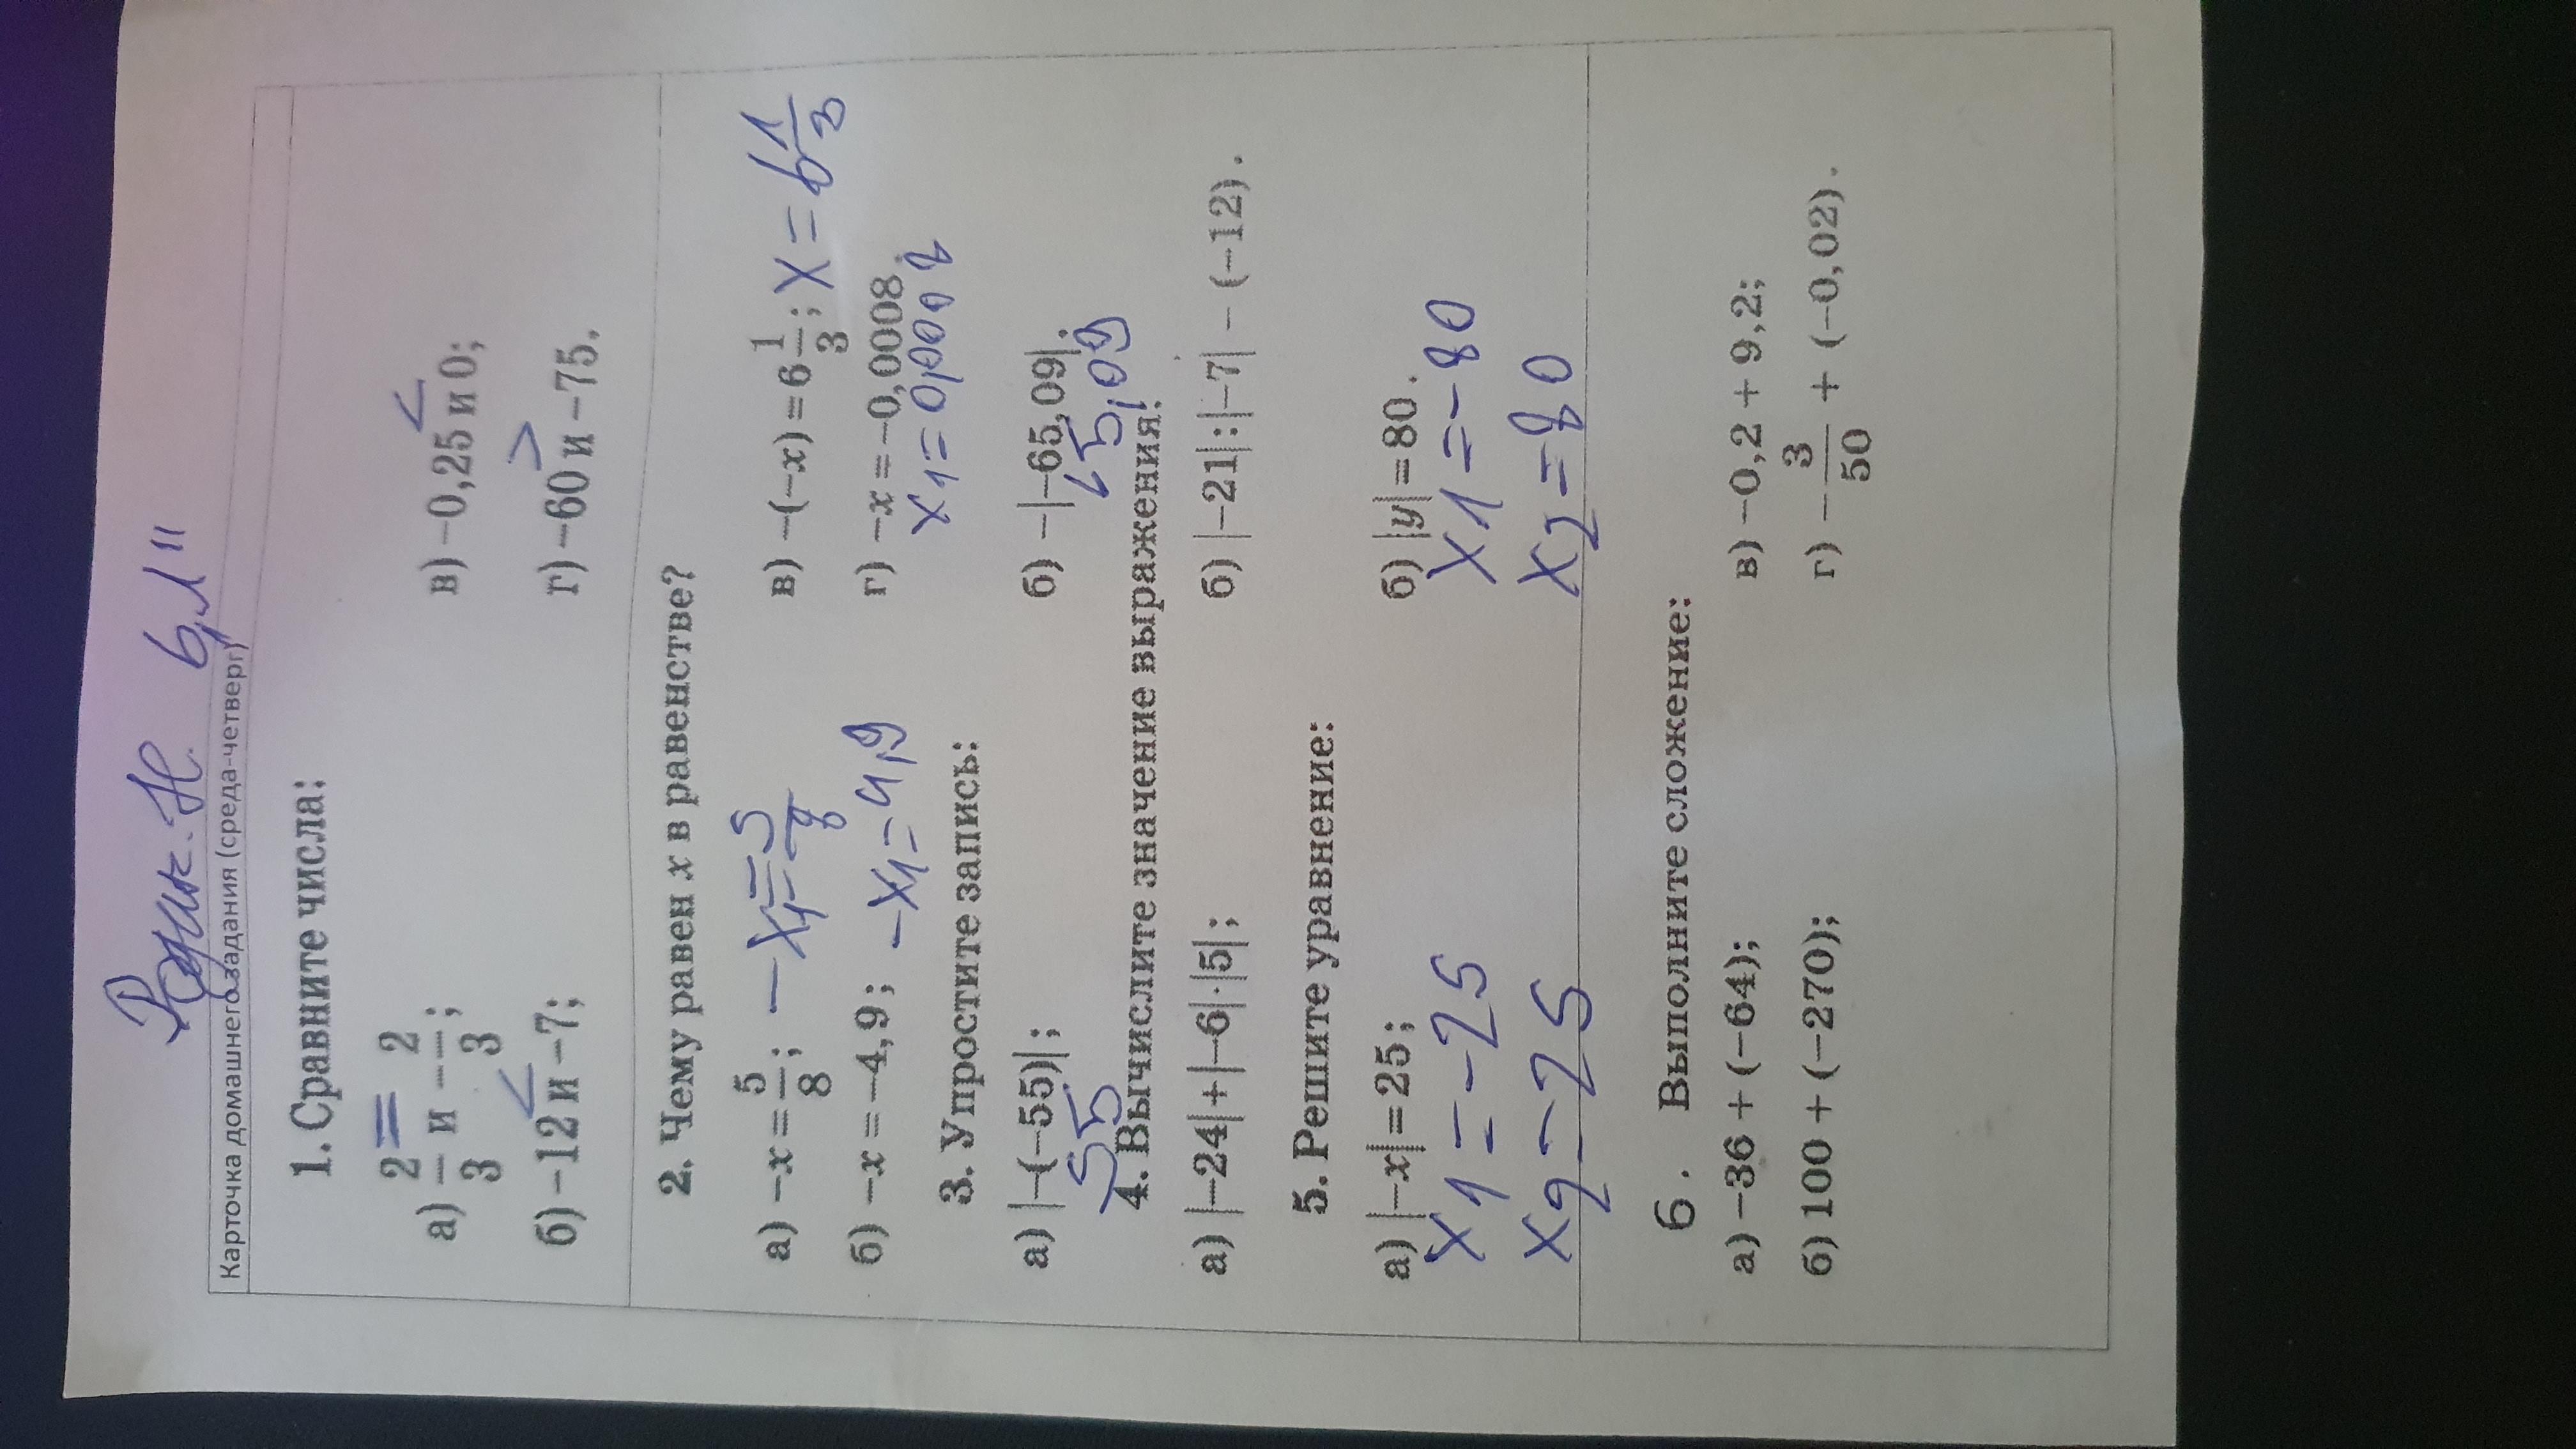 Н. 6 "
Карточка домашнего задания (среда-четверг)
1. Сравните числа:
а) 2/3 = и −2/3; в) −0,25 < и 0;
б) −12 < и −7; г) −60 > и −75.
2. Чему равен x в равенстве?
а) −x = 5/8; −x₁ = 5/8 в) −(−x) = 6 1/3; x = 6 1/3
б) −x = −4,9; −x₁ = 4,9 г) −x = −0,0008.
x1 = 0,0008
3. Упростите запись:
а) |−(−55)|; б) −|−65,09|.
55 65,09
4. Вычислите значение выражения:
а) |−24| + |−6| · |5|; б) |−21| : |−7| − (−12).
5. Решите уравнение:
а) |−x| = 25; б) |y| = 80.
x1 = −25 x1 = −80
x2 − 25 x2 = 80
6. Выполните сложение:
а) −36 + (−64); в) −0,2 + 9,2;
б) 100 + (−270); г) −3/50 + (−0,02).